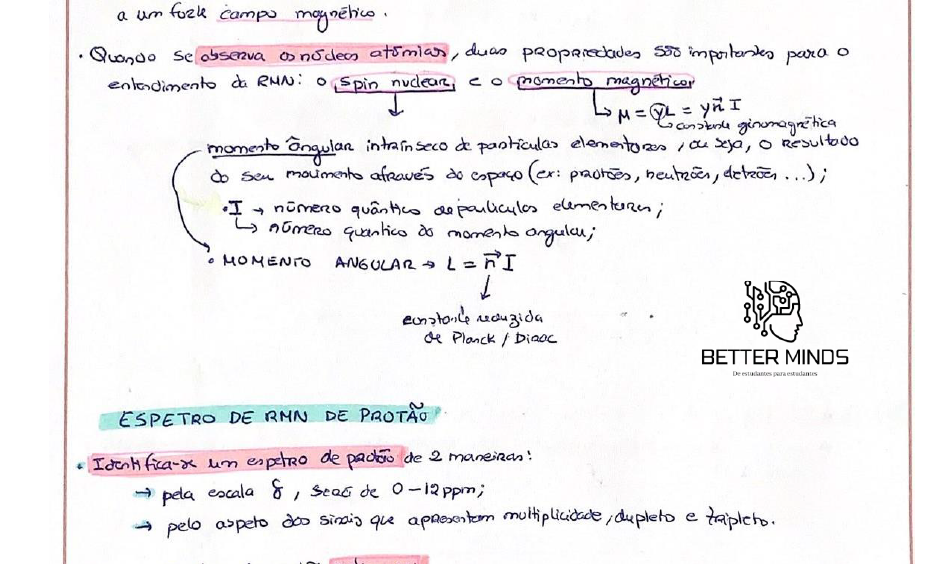 a um forte campo magnético.
• Quando se observa os núcleos atómicos, duas propriedades são importantes para o
entendimento da RMN: o spin nuclear e o momento magnético
μ = γL = γħI
constante giromagnética
momento angular intrínseco de partículas elementares, ou seja, o resultado
do seu movimento através do espaço (ex: protões, neutrões, detrões ...);
• I → número quântico de partículas elementares;
↳ número quantico do momento angular;
• MOMENTO ANGULAR → L = ħI
constante reduzida
de Planck / Dirac
BETTER MINDS
De estudantes para estudantes
ESPETRO DE RMN DE PROTÃO
• Identifica-se um espetro de protão de 2 maneiras:
→ pela escala δ, será de 0-12 ppm;
→ pelo aspeto dos sinais que apresentam multiplicidade, dupleto e tripleto.